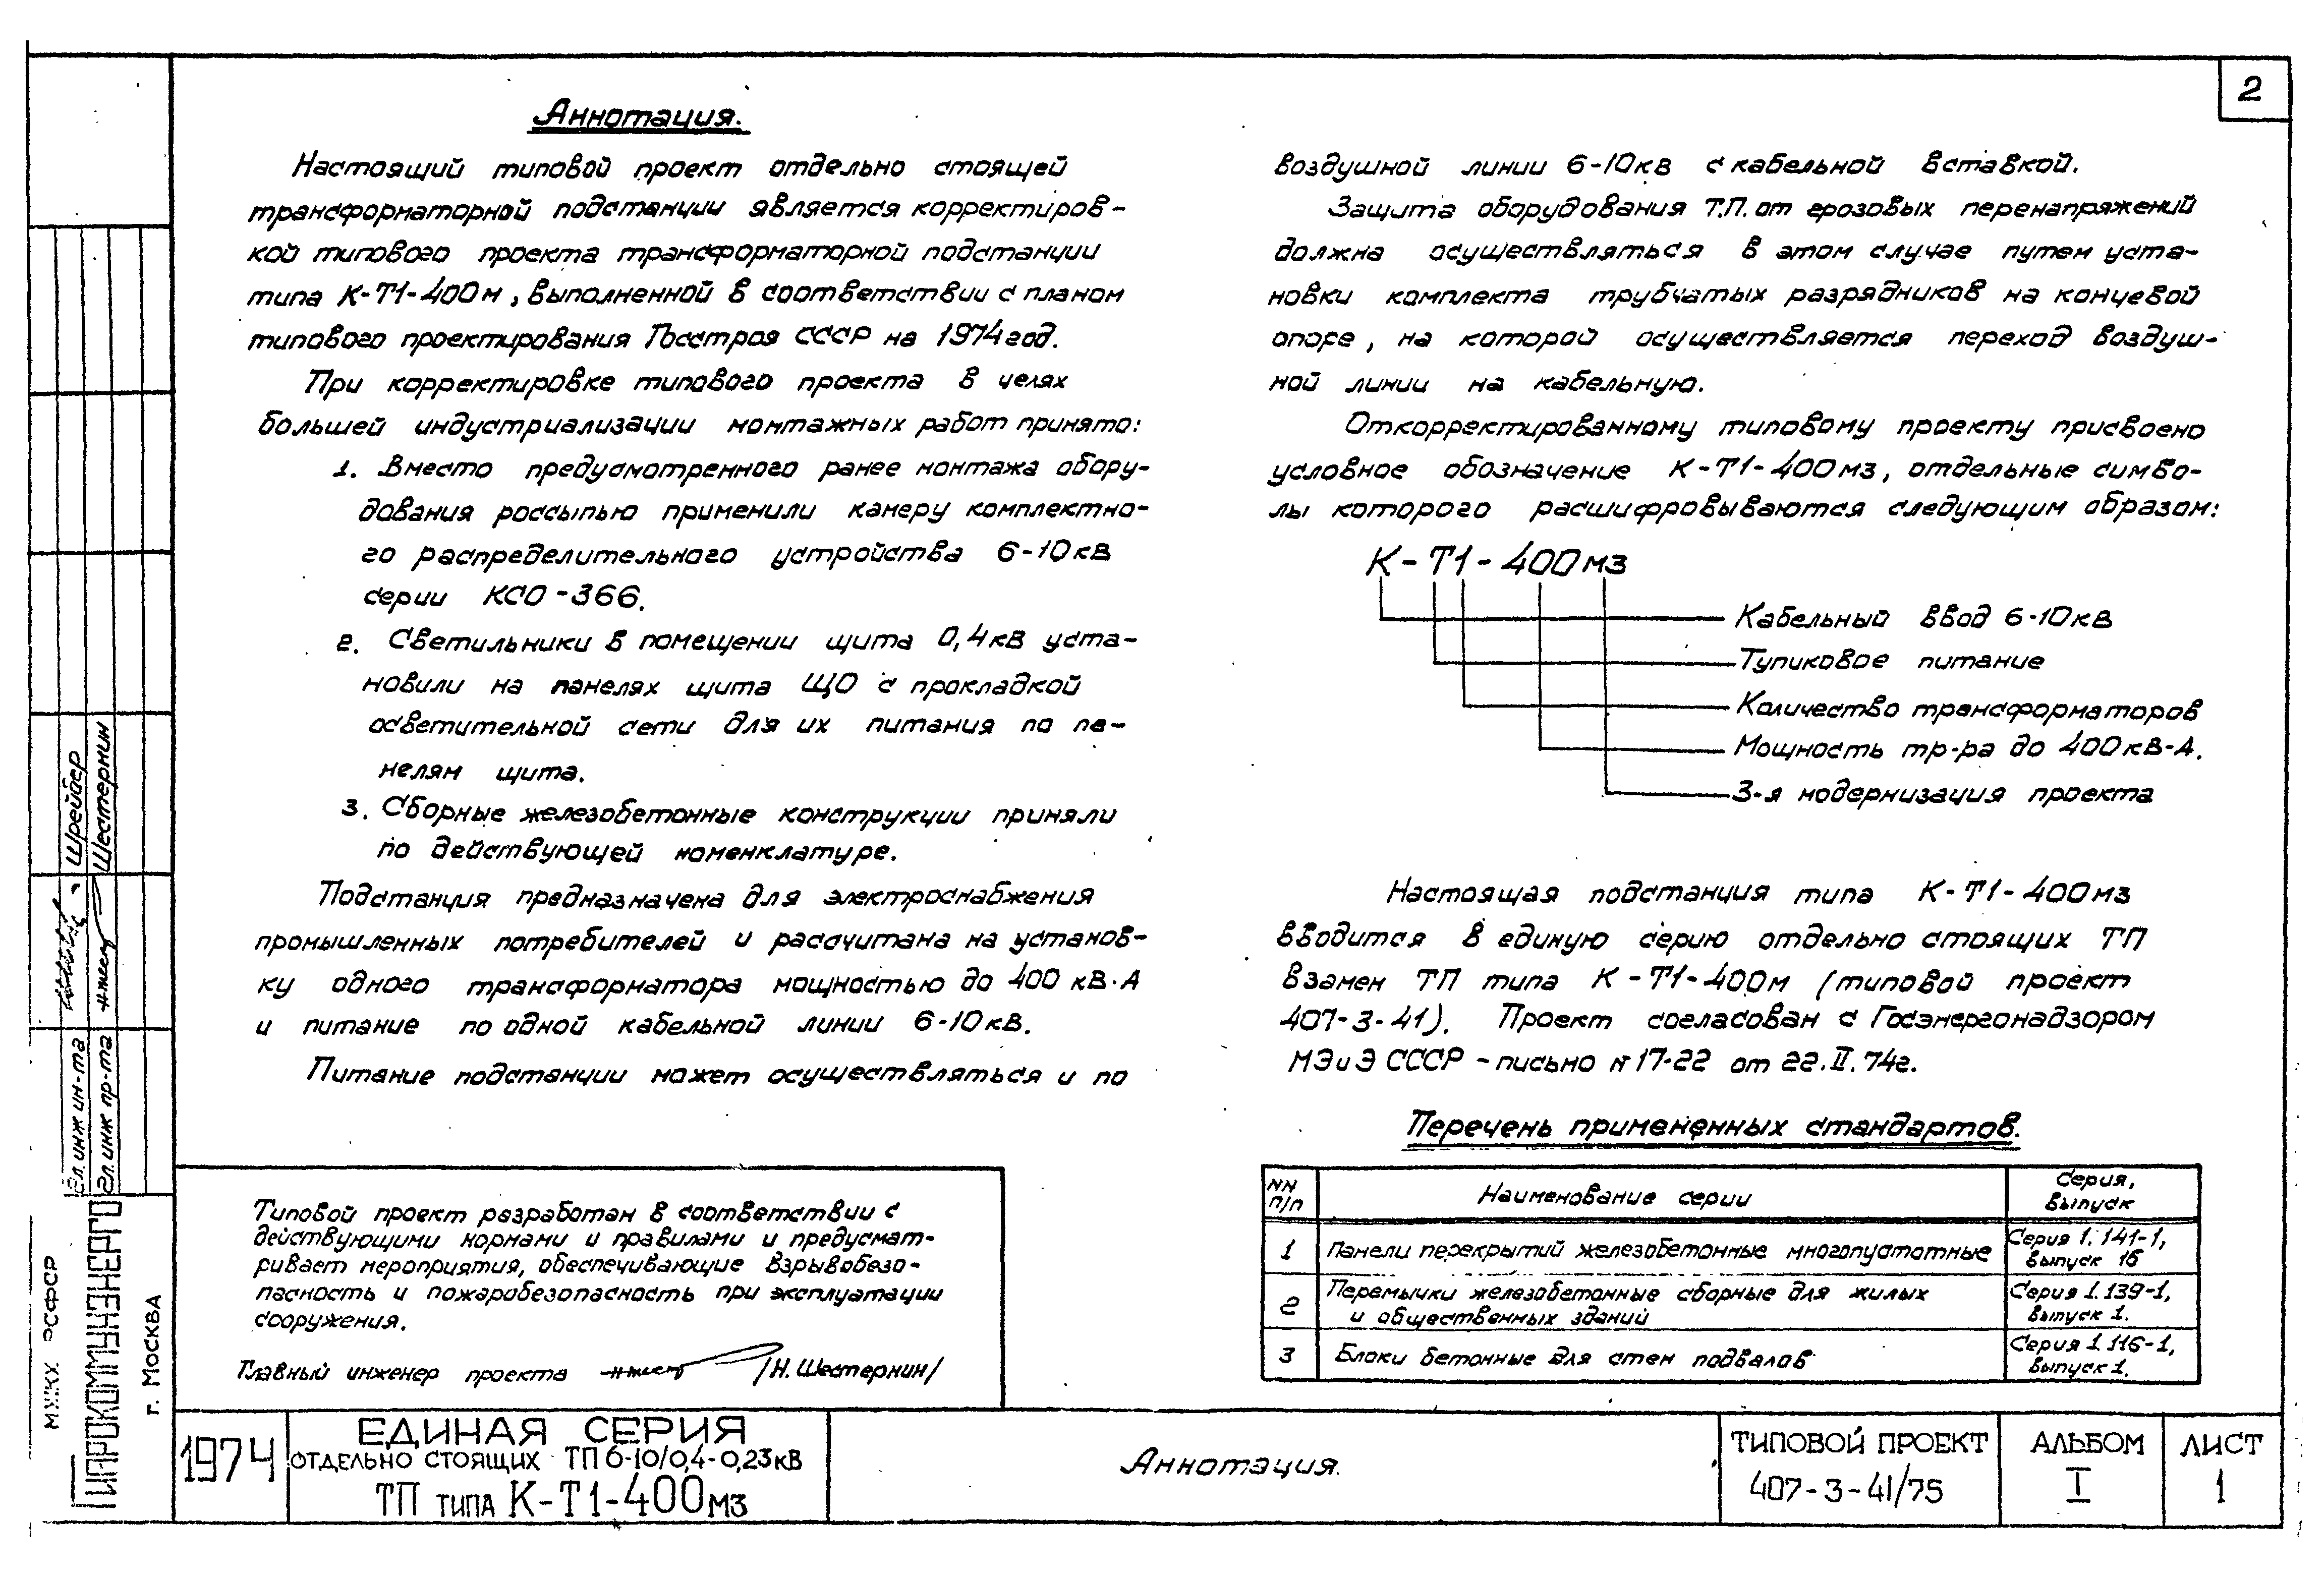 2
Аннотация.
Настоящий типовой проект отдельно стоящей
трансформаторной подстанции является корректиров-
кой типового проекта трансформаторной подстанции
типа К-Т1-400м, выполненной в соответствии с планом
типового проектирования Госстроя СССР на 1974 год.
При корректировке типового проекта в целях
большей индустриализации монтажных работ принято:
1. Вместо предусмотренного ранее монтажа обору-
дования россыпью применили камеру комплектно-
го распределительного устройства 6-10кВ
серии КСО-366.
2. Светильники в помещении щита 0,4кВ уста-
новили на панелях щита ЩО с прокладкой
осветительной сети для их питания по па-
нелям щита.
3. Сборные железобетонные конструкции приняли
по действующей номенклатуре.
Подстанция предназначена для электроснабжения
промышленных потребителей и рассчитана на установ-
ку одного трансформатора мощностью до 400 кВ·А
и питание по одной кабельной линии 6-10кВ.
Питание подстанции может осуществляться и по
воздушной линии 6-10кВ с кабельной вставкой.
Защита оборудования Т.П. от грозовых перенапряжений
должна осуществляться в этом случае путем уста-
новки комплекта трубчатых разрядников на концевой
опоре, на которой осуществляется переход воздуш-
ной линии на кабельную.
Откорректированному типовому проекту присвоено
условное обозначение К-Т1-400м3, отдельные симво-
лы которого расшифровываются следующим образом:
К-Т1-400м3
Кабельный ввод 6-10кВ
Тупиковое питание
Количество трансформаторов
Мощность тр-ра до 400кВ-А.
3-я модернизация проекта
Настоящая подстанция типа К-Т1-400м3
вводится в единую серию отдельно стоящих ТП
взамен ТП типа К-Т1-400м (типовой проект
407-3-41). Проект согласован с Госэнергонадзором
МЭиЭ СССР - письмо н 17-22 от 22.II.74г.
Перечень примененных стандартов.
NN п/п Наименование серии Серия, выпуск
1 Панели перекрытий железобетонные многопустотные Серия 1.141-1, выпуск 16
2 Перемычки железобетонные сборные для жилых и общественных зданий Серия 1.139-1, выпуск 1.
3 Блоки бетонные для стен подвалов Серия 1.116-1, выпуск 1.
Типовой проект разработан в соответствии с
действующими нормами и правилами и предусмат-
ривает мероприятия, обеспечивающие взрывобезо-
пасность и пожаробезопасность при эксплуатации
сооружения.
Главный инженер проекта /Н. Шестернин/
Гл. инж ин-та Шрейбер
Гл. инж пр-та Шестернин
МЖКХ РСФСР
ГИПРОКОММУНЭНЕРГО
г. Москва
1974
ЕДИНАЯ СЕРИЯ
ОТДЕЛЬНО СТОЯЩИХ ТП 6-10/0,4-0,23кВ
ТП типа К-Т1-400м3
Аннотация.
ТИПОВОЙ ПРОЕКТ
407-3-41/75
АЛЬБОМ
I
ЛИСТ
1